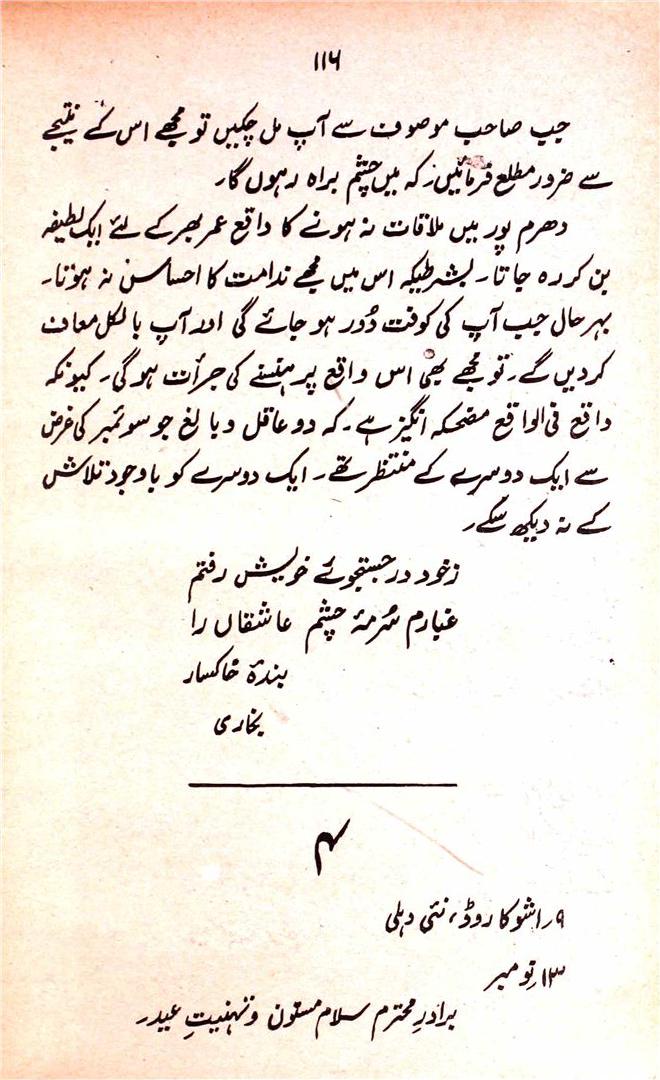 ۱۱۶
جب صاحب موصوف سے آپ مل چکیں تو مجھے اس کے نتیجے
سے ضرور مطلع فرمائیں۔ کہ میں چشم براہ رہوں گا۔
دھرم پور میں ملاقات نہ ہونے کا واقع عمر بھر کے لئے ایک لطیفہ
بن کر رہ جاتا۔ بشرطیکہ اس میں مجھے ندامت کا احساس نہ ہوتا۔
بہر حال جب آپ کی کوفت دُور ہو جائے گی اور آپ بالکل معاف
کر دیں گے۔ تو مجھے بھی اس واقع پر ہنسنے کی جرأت ہو گی۔ کیونکہ
واقع فی الواقع مضحکہ انگیز ہے۔ کہ دو عاقل و بالغ جو سوئمبر کی غرض
سے ایک دوسرے کے منتظر تھے۔ ایک دوسرے کو باوجود تلاش
کے نہ دیکھ سکے۔
زخود در جستجوئے خویش رفتم
غبارم سُرمۂ چشم عاشقاں را
بندۂ خاکسار
بخاری
۴
۹ر اشوکا روڈ، نئی دہلی
۱۳ر نومبر
برادرِ محترم سلام مسنون و تہنیتِ عید۔